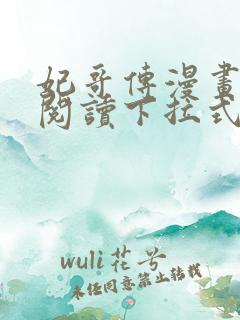 妃哥傳漫畫
閱讀下拉式
wuli花兮
未经同意禁止转载